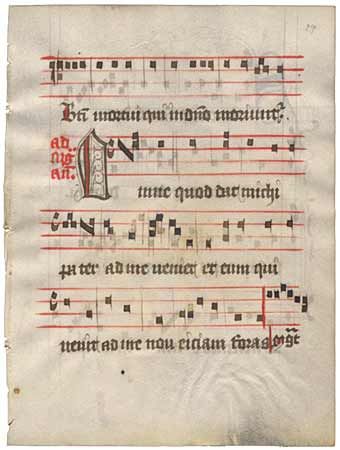 Bti mortui qui in dno moriunt.
ad
mg
an.
Omne quod dat michi
pater ad me veniet et eum qui
venit ad me non eiciam foras